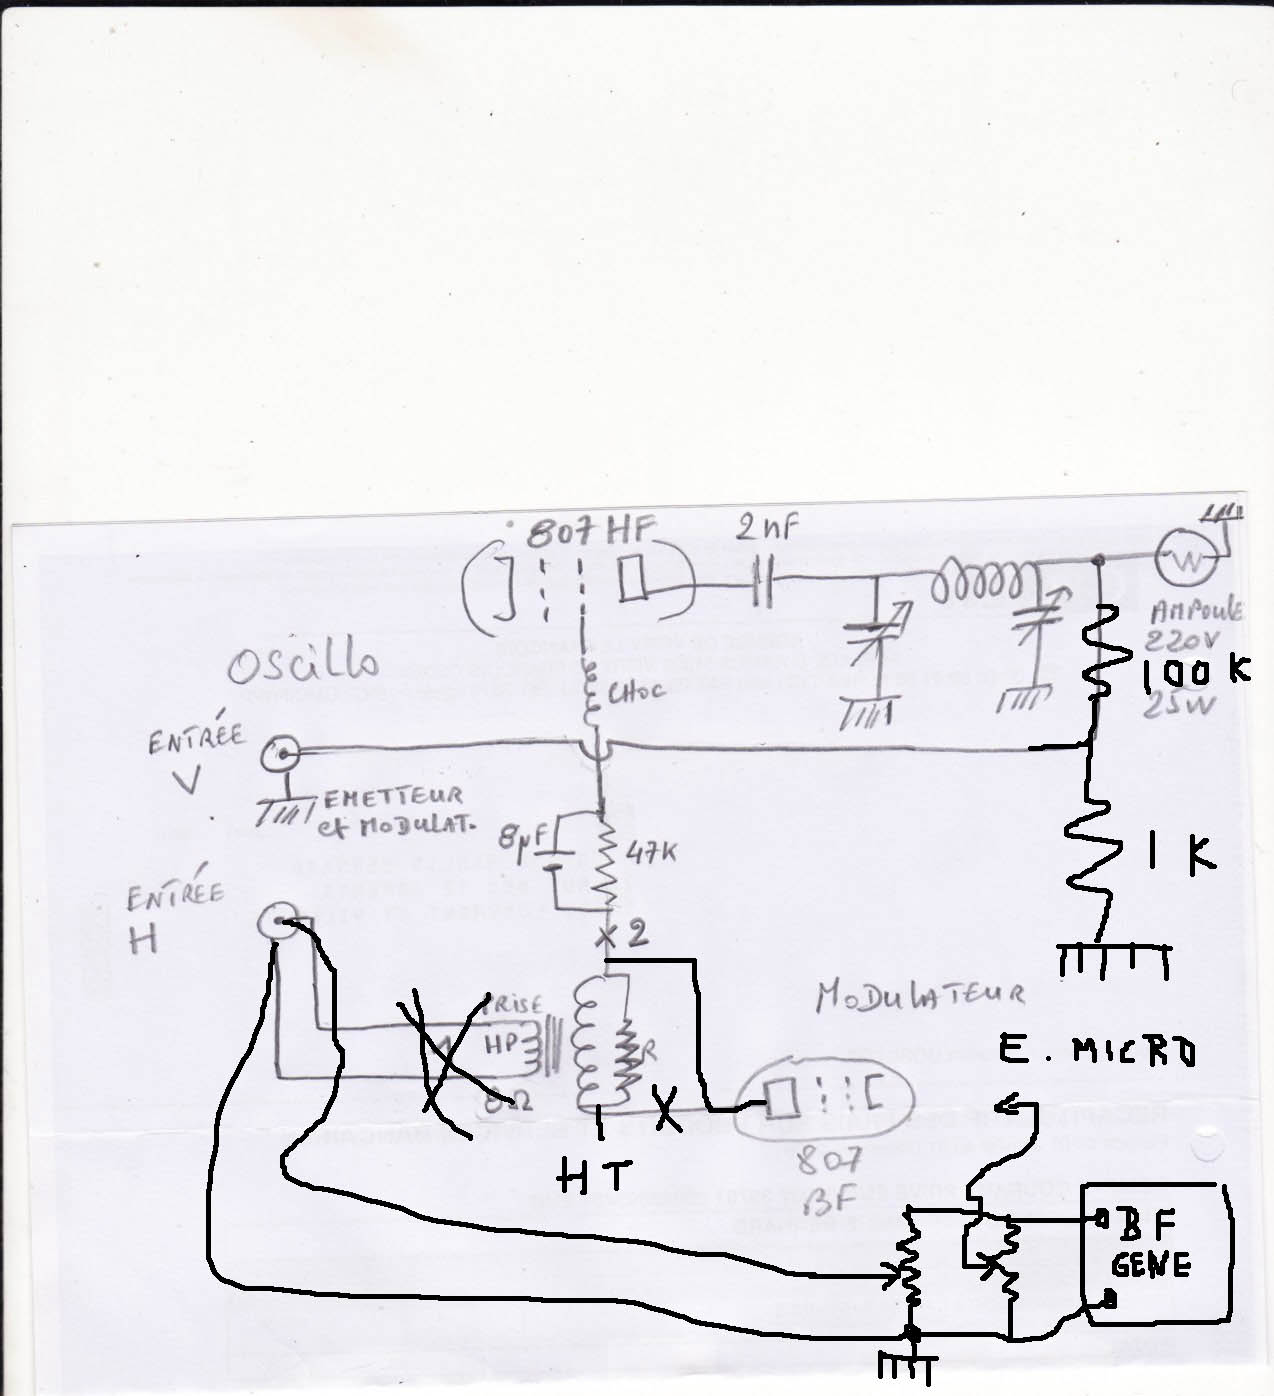 807 HF
2 nF
AMPOULE
220V
100 K
25W
OSCILLO
CHOC
ENTRÉE
V
EMETTEUR
et MODULAT.
8µF
47K
1 K
ENTRÉE
H
2
MODULATEUR
PRISE
HP
R
8Ω
E. MICRO
HT
807
BF
BF
GENE